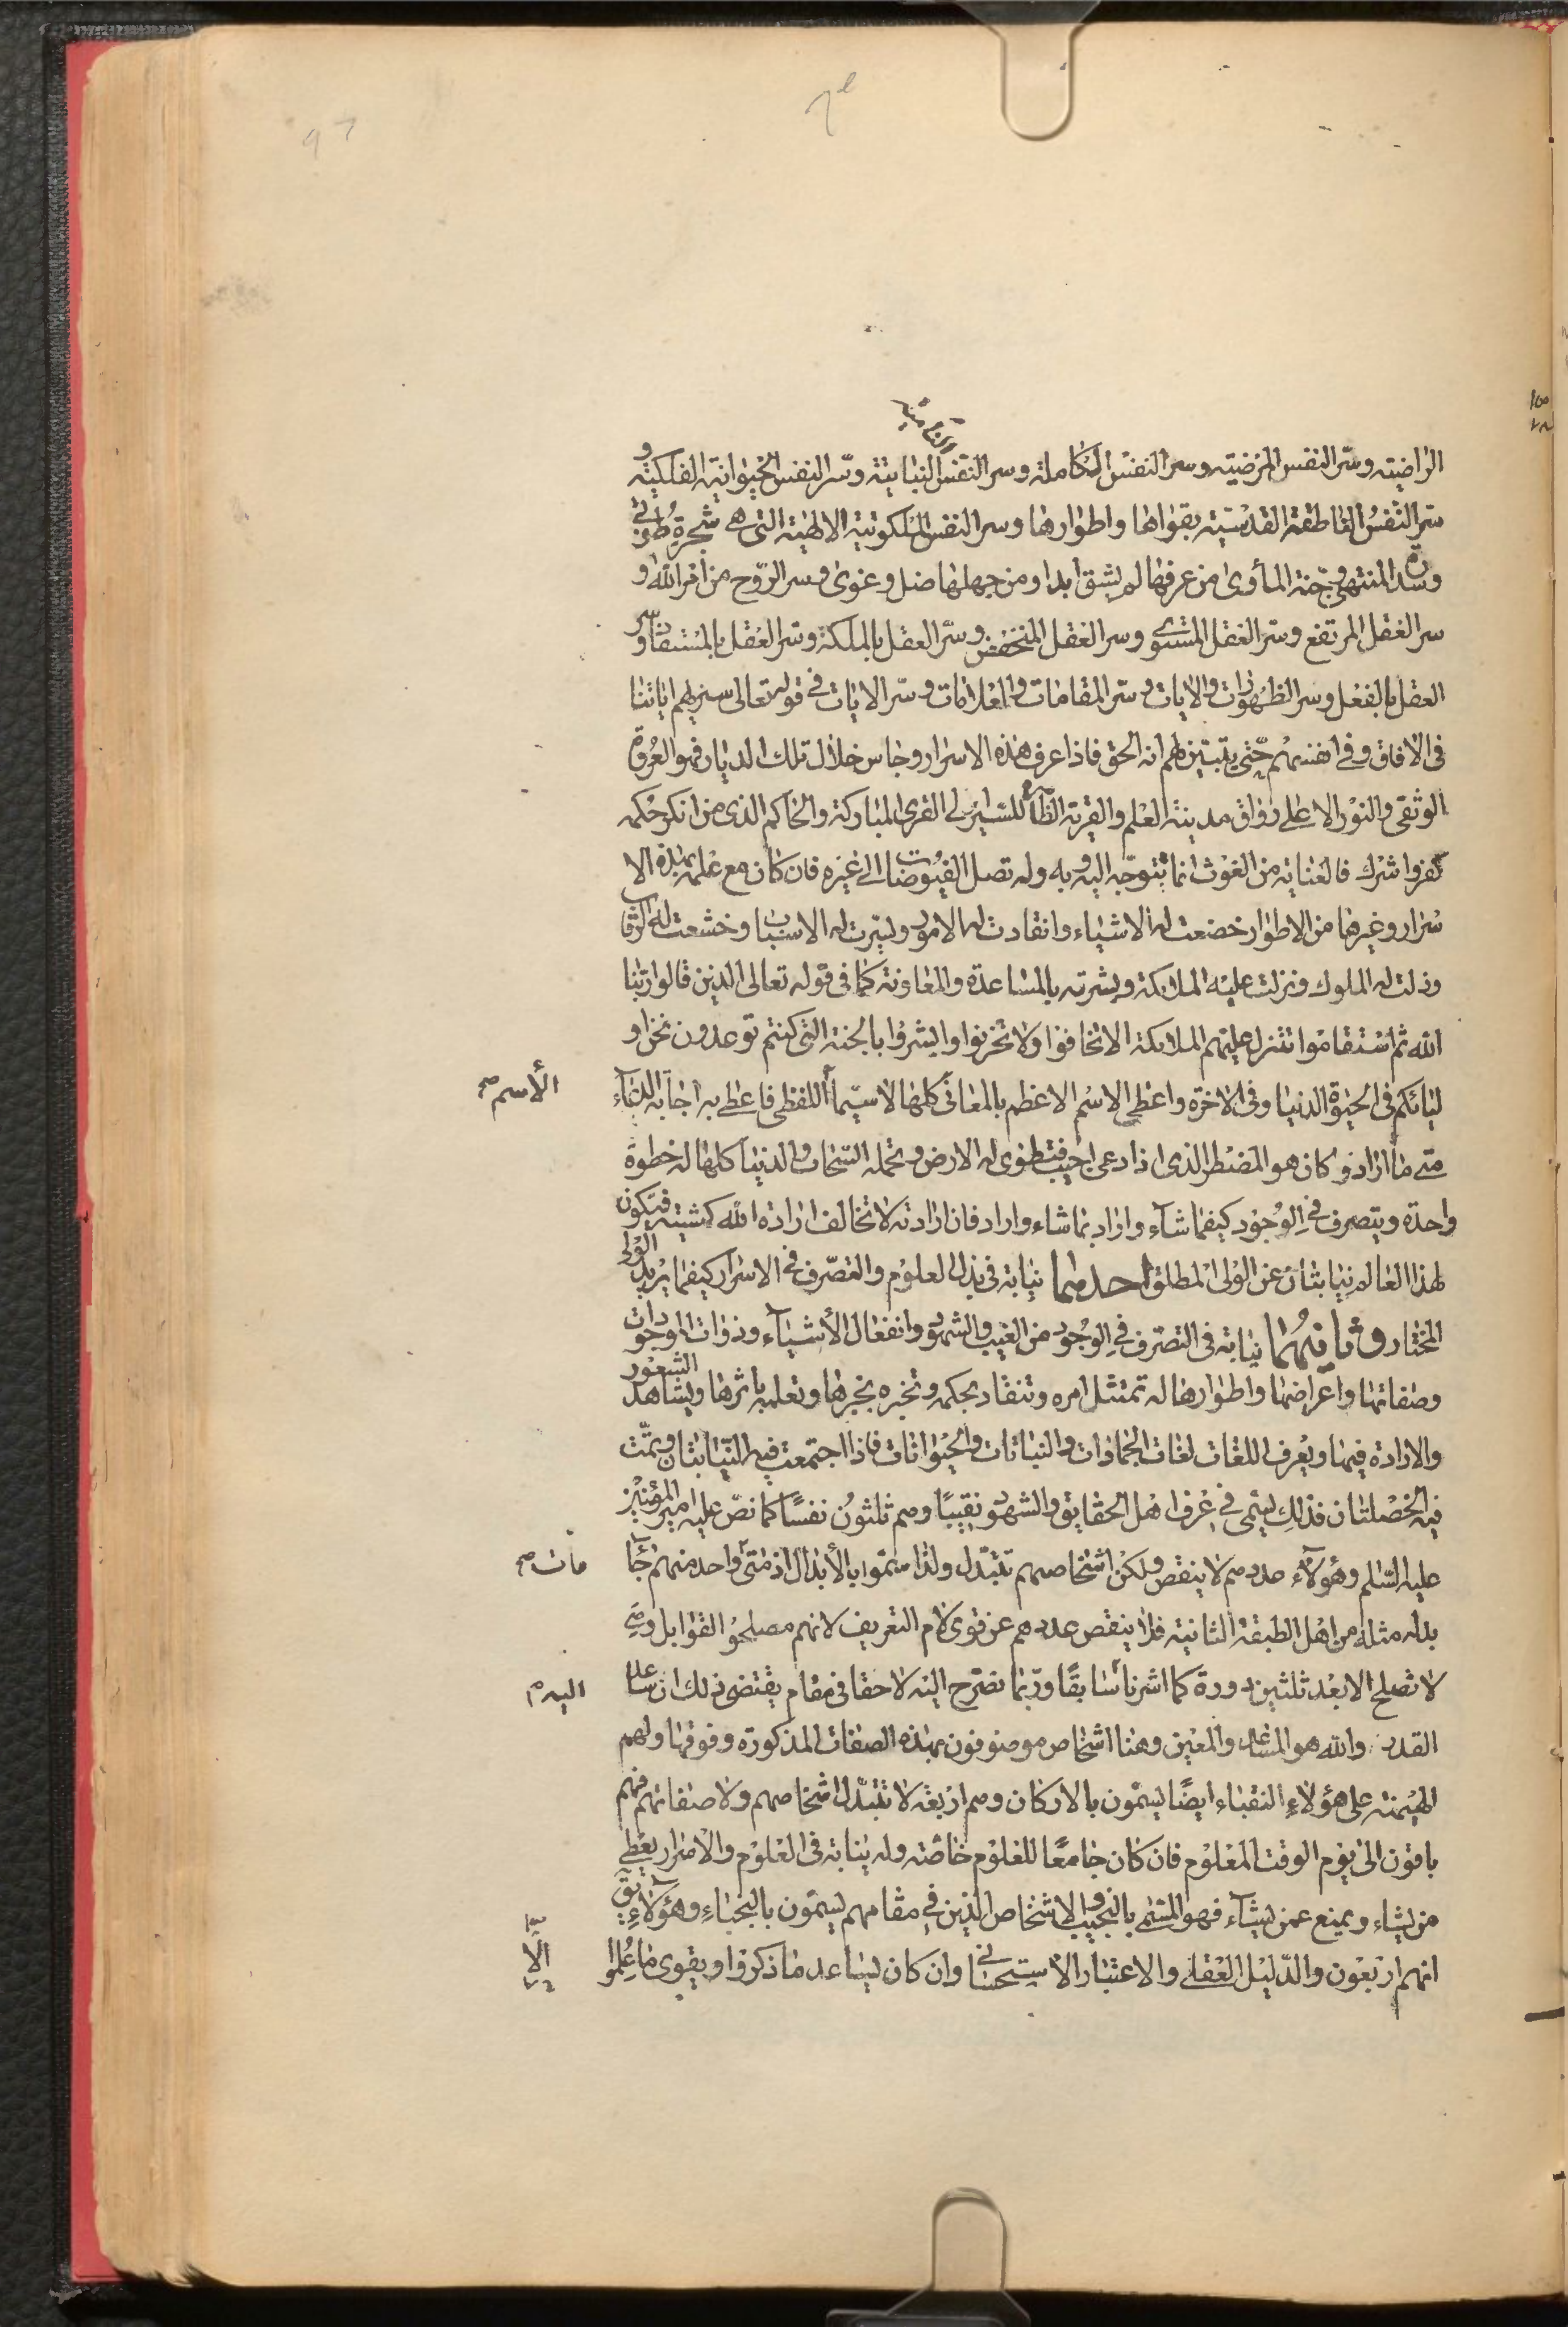 الراضية وسر النفس المرضية وسر النفس الكاملة وسر النفس النباتية وسر النفس الحيوانية الفلكية و
سر النفس الناطقة القدسية بقواها واطوارها وسر النفس الملكوتية الالهية التي هي شجرة طوبى
وسدرة المنتهى وجنة المأوى من عرفها لم يشق ابدا ومن جهلها ضل وغوى وسر الروح من امر الله و
سر العقل المرتفع وسر العقل المستوي وسر العقل المنخفض وسر العقل بالملكة وسر العقل بالمستفاد وسر
العقل بالفعل وسر الظهورات والايات وسر المقامات والعلامات وسر الايات في قوله تعالى سنريهم اياتنا
في الافاق وفي انفسهم حتى يتبين لهم انه الحق فاذا عرف هذه الاسرار وجاس خلال تلك الديار فهو العروة
الوثقى والنور الاعلى رواق مدينة العلم والقرية الظاهرة للسير الى القرى المباركة والحاكم الذي من انكر حكمه
كفر واشرك فالعناية من الغوث انما تتوجه اليه وبه وله تصل الفيوضات الى غيره فان كان مع علمه بهذه الا
سرار وغيرها من الاطوار خضعت له الاشياء وانقادت له الامور ويسرت له الاسباب وخشعت له الرقاب
وذلت له الملوك ونزلت عليه الملائكة وبشرته بالمساعدة والمعاونة كما في قوله تعالى الذين قالوا ربنا
الله ثم استقاموا تتنزل عليهم الملائكة الا تخافوا ولا تحزنوا وابشروا بالجنة التي كنتم توعدون نحن او
لياؤكم في الحيوة الدنيا وفي الاخرة واعطي الاسم الاعظم بالمعاني كلها لا سيما اللفظي فاعطي به اجابة الدعاء
الأسم صح
متى ما اراد وكان هو المضطر الذي اذا دعى اجيب فتطوى له الارض وتحمله السحاب والدنيا كلها له خطوة
واحدة ويتصرف في الوجود كيفما شاء واراد بما شاء واراد فان ارادته لا تخالف ارادة الله كمشيته فيكون
لهذا العالم نيابتان عن الولي المطلق احدهما نيابة في بذل العلوم والتصرف في الاسرار كيفما يريد الولي
المختار وثانيهما نيابة في التصرف في الوجود من الغيب والشهود وانفعال الأشياء وذوات الموجودات
وصفاتها واعراضها واطوارها له تمتثل امره وتنقاد بحكمه وتخبره بخبرها وتعلمه باثرها ويشاهد الشعور
والارادة فيها ويعرف اللغات لغات الجمادات والنباتات والحيوانات فاذا اجتمعت فيه النيابتان وتمت
فيه الخصلتان فذلك يسمى في عرف اهل الحقايق والشهود نقيبًا وهم ثلثون نفسًا كما نص عليه امير المؤمنين
عليه السلم وهؤلاء عددهم لا ينقص ولكن اشخاصهم تتبدل ولذا سموا بالأبدال اذ متى واحد منهم جاء
مات صح
بدله مثله من اهل الطبقة الثانية فلا ينقص عددهم عن قوى لام التعريف لانهم مصلحوا القوابل وهي
لا تصلح الا بعد ثلثين دورة كما اشرنا سابقًا وربما نصرح اليه لاحقا في مقام يقتضي ذلك ان ساعد
اليه م
القدر والله هو المساعد والمعين وهنا اشخاص موصوفون بهذه الصفات المذكورة وفوقها ولهم
الهيمنة على هؤلاء النقباء ايضًا يسمون بالاركان وهم اربعة لا تتبدل اشخاصهم ولا صفاتهم فهم
باقون الى يوم الوقت المعلوم فان كان جامعًا للعلوم خاصة وله نيابة في العلوم والاسرار يعطي
من يشاء ويمنع عمن يشاء فهو المسمى بالنجيب والاشخاص الذين في مقامهم يسمون بالنجباء وهؤلاء يق
انهم اربعون والدليل العقلي والاعتبار الاستحساني وان كان يساعد ما ذكروا ويقوى ما علموا
الا